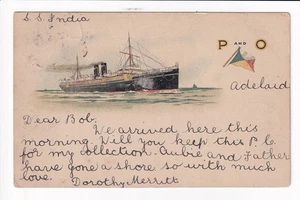 S.S. India
P AND O
Adelaid
Dear Bob.
We arrived here this
morning Will you keep this P.C
for my collection. Aubie and Father
have gone a shore so with much
love.
Dorothy Merritt